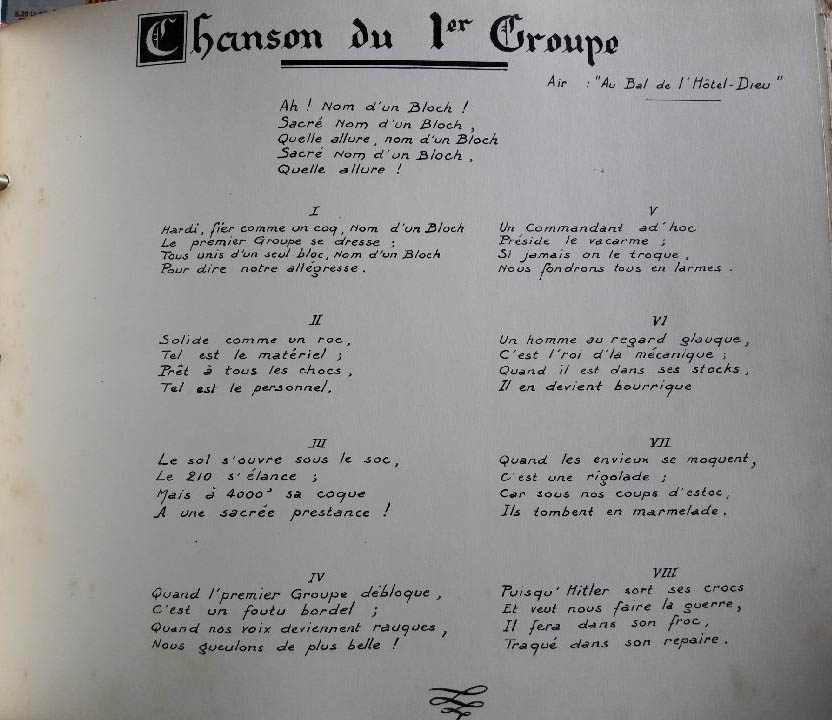 Chanson du 1er Groupe
Air : "Au Bal de l'Hôtel-Dieu"
Ah ! Nom d'un Bloch !
Sacré Nom d'un Bloch,
Quelle allure, nom d'un Bloch
Sacré Nom d'un Bloch,
Quelle allure !
I
Hardi, fier comme un coq, Nom d'un Bloch
Le premier Groupe se dresse ;
Tous unis d'un seul bloc, Nom d'un Bloch
Pour dire notre allégresse.
II
Solide comme un roc,
Tel est le matériel ;
Prêt à tous les chocs,
Tel est le personnel.
III
Le sol s'ouvre sous le soc,
Le 210 s'élance ;
Mais à 4000ᵐ sa coque
A une sacrée prestance !
IV
Quand l'premier Groupe débloque,
C'est un foutu bordel ;
Quand nos voix deviennent rauques,
Nous gueulons de plus belle !
V
Un Commandant ad'hoc
Préside le vacarme ;
Si jamais on le troque,
Nous fondrons tous en larmes.
VI
Un homme au regard glauque,
C'est l'roi d'la mécanique ;
Quand il est dans ses stocks,
Il en devient bourrique
VII
Quand les envieux se moquent,
C'est une rigolade ;
Car sous nos coups d'estoc,
Ils tombent en marmelade.
VIII
Puisqu'Hitler sort ses crocs
Et veut nous faire la guerre,
Il fera dans son froc,
Traqué dans son repaire.